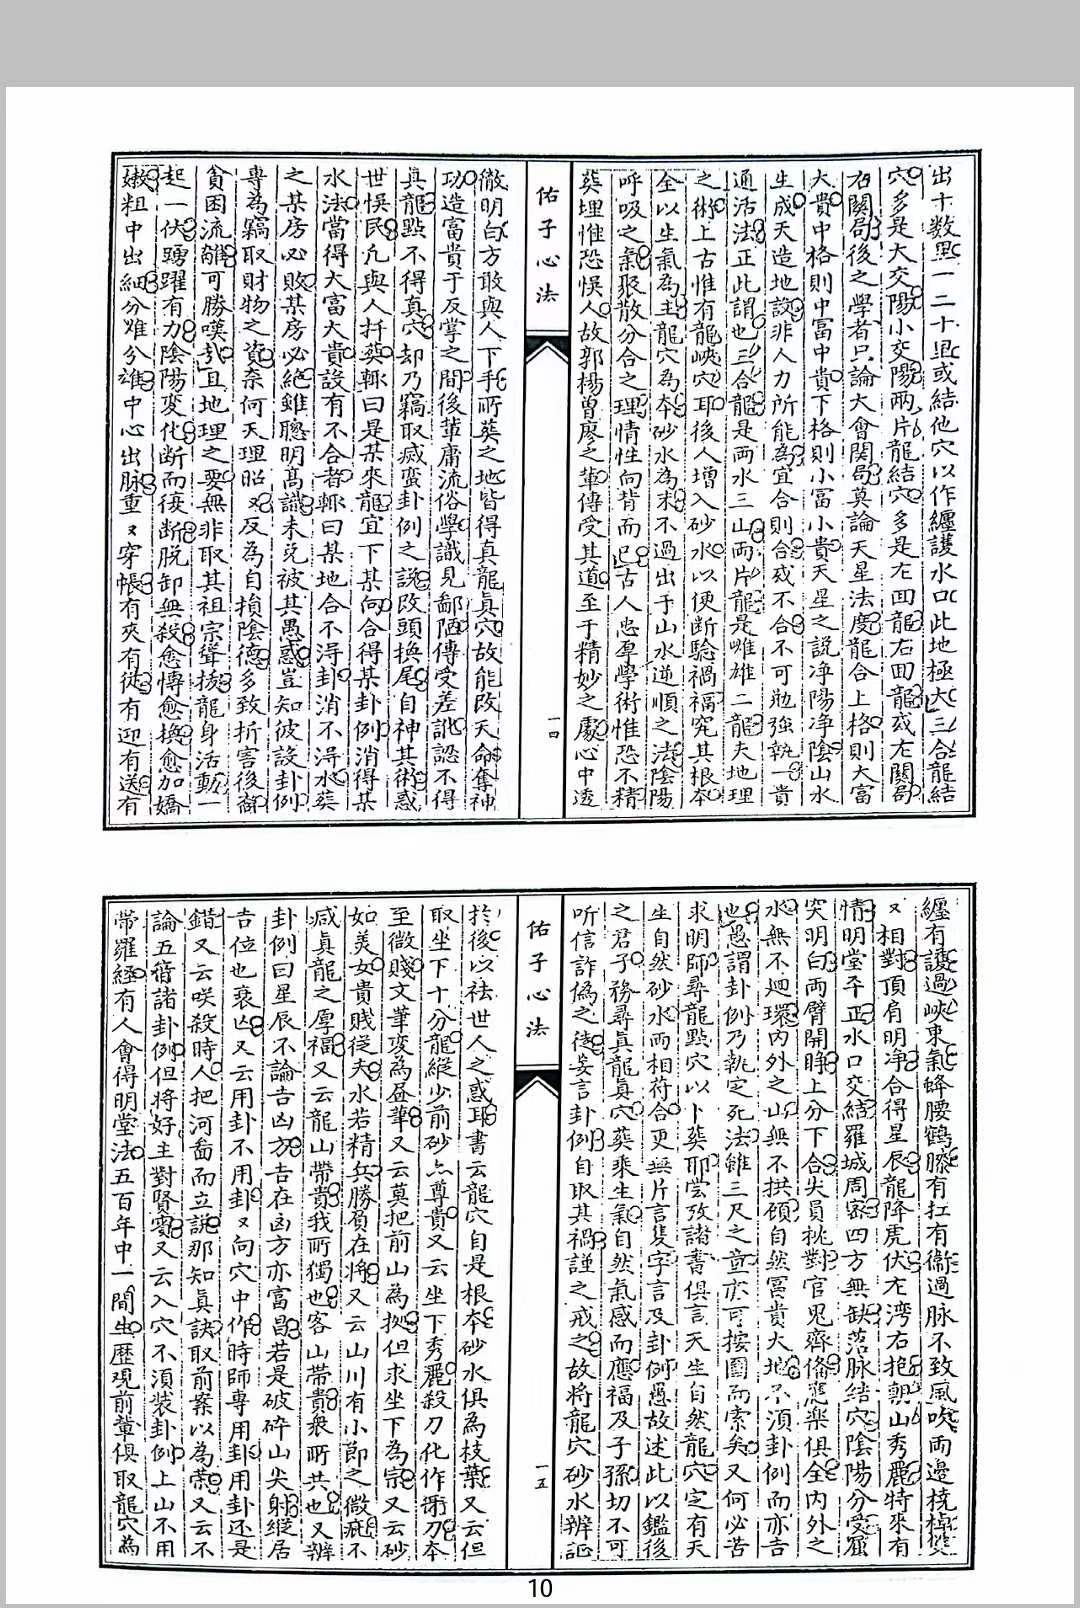 出十數里一二十里或結他穴以作纏護水口此地極大三合龍結
穴多是大交陽小交陽兩片龍結穴多是左回龍右回龍或左關局
右關局後之學者只論大會関局莫論天星法度龍合上格則大富
大貴中格則中富中貴下格則小富小貴天星之說净陽净陰山水
生成天造地設非人力所能為宜合則合或不合不可勉強執一貴
通活法正此謂也三合龍是兩水三山兩片龍是雌雄二龍夫地理
之術上古惟有龍峽穴耳後人增入砂水以便断驗禍福究其根本
全以生氣為主龍穴為本砂水為末不過出于山水逆順之法陰陽
呼吸之氣聚散分合之理情性向背而已古人忠厚學術惟恐不精
葬埋惟恐悞人故郭楊曾廖之輩傳受其道至于精妙之處心中透
佑子心法
一四
徹明白方敢與人下手所葬之地皆得真龍真穴故能改天命奪神
功造富貴于反掌之間後輩庸流俗學識見鄙陋傳受差訛認不得
真龍點不得真穴却乃竊取烕蛮卦例之說改頭換尾自神其術惑
世悞民凢與人扦葬輒曰是某來龍宜下某向合得某卦例消得某
水法當得大富大貴設有不合者輒曰某地合不淂卦消不淂水葬
之某房必敗某房必絶雖聰明髙識未免被其愚惑豈知彼設卦例
專為竊取財物之資柰何天理昭㐅反為自損陰德多致折害後裔
貪困流離可勝嘆哉且地理之要無非取其祖宗聳拔龍身活動一
起一伏踴躍有力陰陽変化断而復断脱卸無殺愈愽愈換愈加嬌
嫩粗中出細分难分雄中心出脉重㐅穿帳有夾有從有迎有送有
纏有護過峽東氣蜂腰鶴膝有扛有衞過脉不致風吹两邊梹棹㸚
㐅相對頂肩明净合得星辰龍降虎伏左湾右抱朝山秀麗特來有
情明堂平正水口交結羅城周宻四方無缺落脉結穴陰陽分受窟
突明白两臂開睜上分下合尖員挑對官鬼齊俻應樂俱全内外之
水無不廻環内外之山無不拱顧自然冨貴大地不湏卦例而亦吉
也愚謂卦例乃執定死法雖三尺之童亦可按圖而索矣又何必苦
求明師尋龍點穴以卜葬耶嘗攷諸書俱言天生自然龍穴定有天
生自然砂水而相符合更無片言隻字言及卦例愚故述此以鑑後
之君子務尋真龍真穴葬乘生氣自然氣感而應福及子孫切不可
听信詐偽之徒妄言卦例自取其禍謹之戒之故将龍穴砂水辨証
佑子心法
一五
扵後以袪世人之惑耳書云龍穴自是根本砂水俱為枝葉又云但
取坐下十分龍縱少前砂亦尊貴又云坐下秀麗殺刀化作衙刀本
至微賤文筆変為昼筆又云莫把前山為拠但求坐下為宗又云砂
如美女貴賎従夫水若精兵勝負在將又云山川有小節之微疵不
减真龍之厚福又云龍山帶貴我所獨也客山帶貴衆所共也又辨
卦例曰星辰不論吉凶方吉在凶方亦富昌若是破碎山尖射縱居
吉位也衰凶又云用卦不用卦㐅向穴中作時師專用卦用卦还是
錯又云咲殺時人把河啚而立說那知真訣取前案以為䒰又云不
論五音諸卦例但将好主對賢賔又云入穴不湏裝卦例上山不用
帶羅經有人會得明堂法五百年中一間生歴覌前輩俱取龍穴為
10